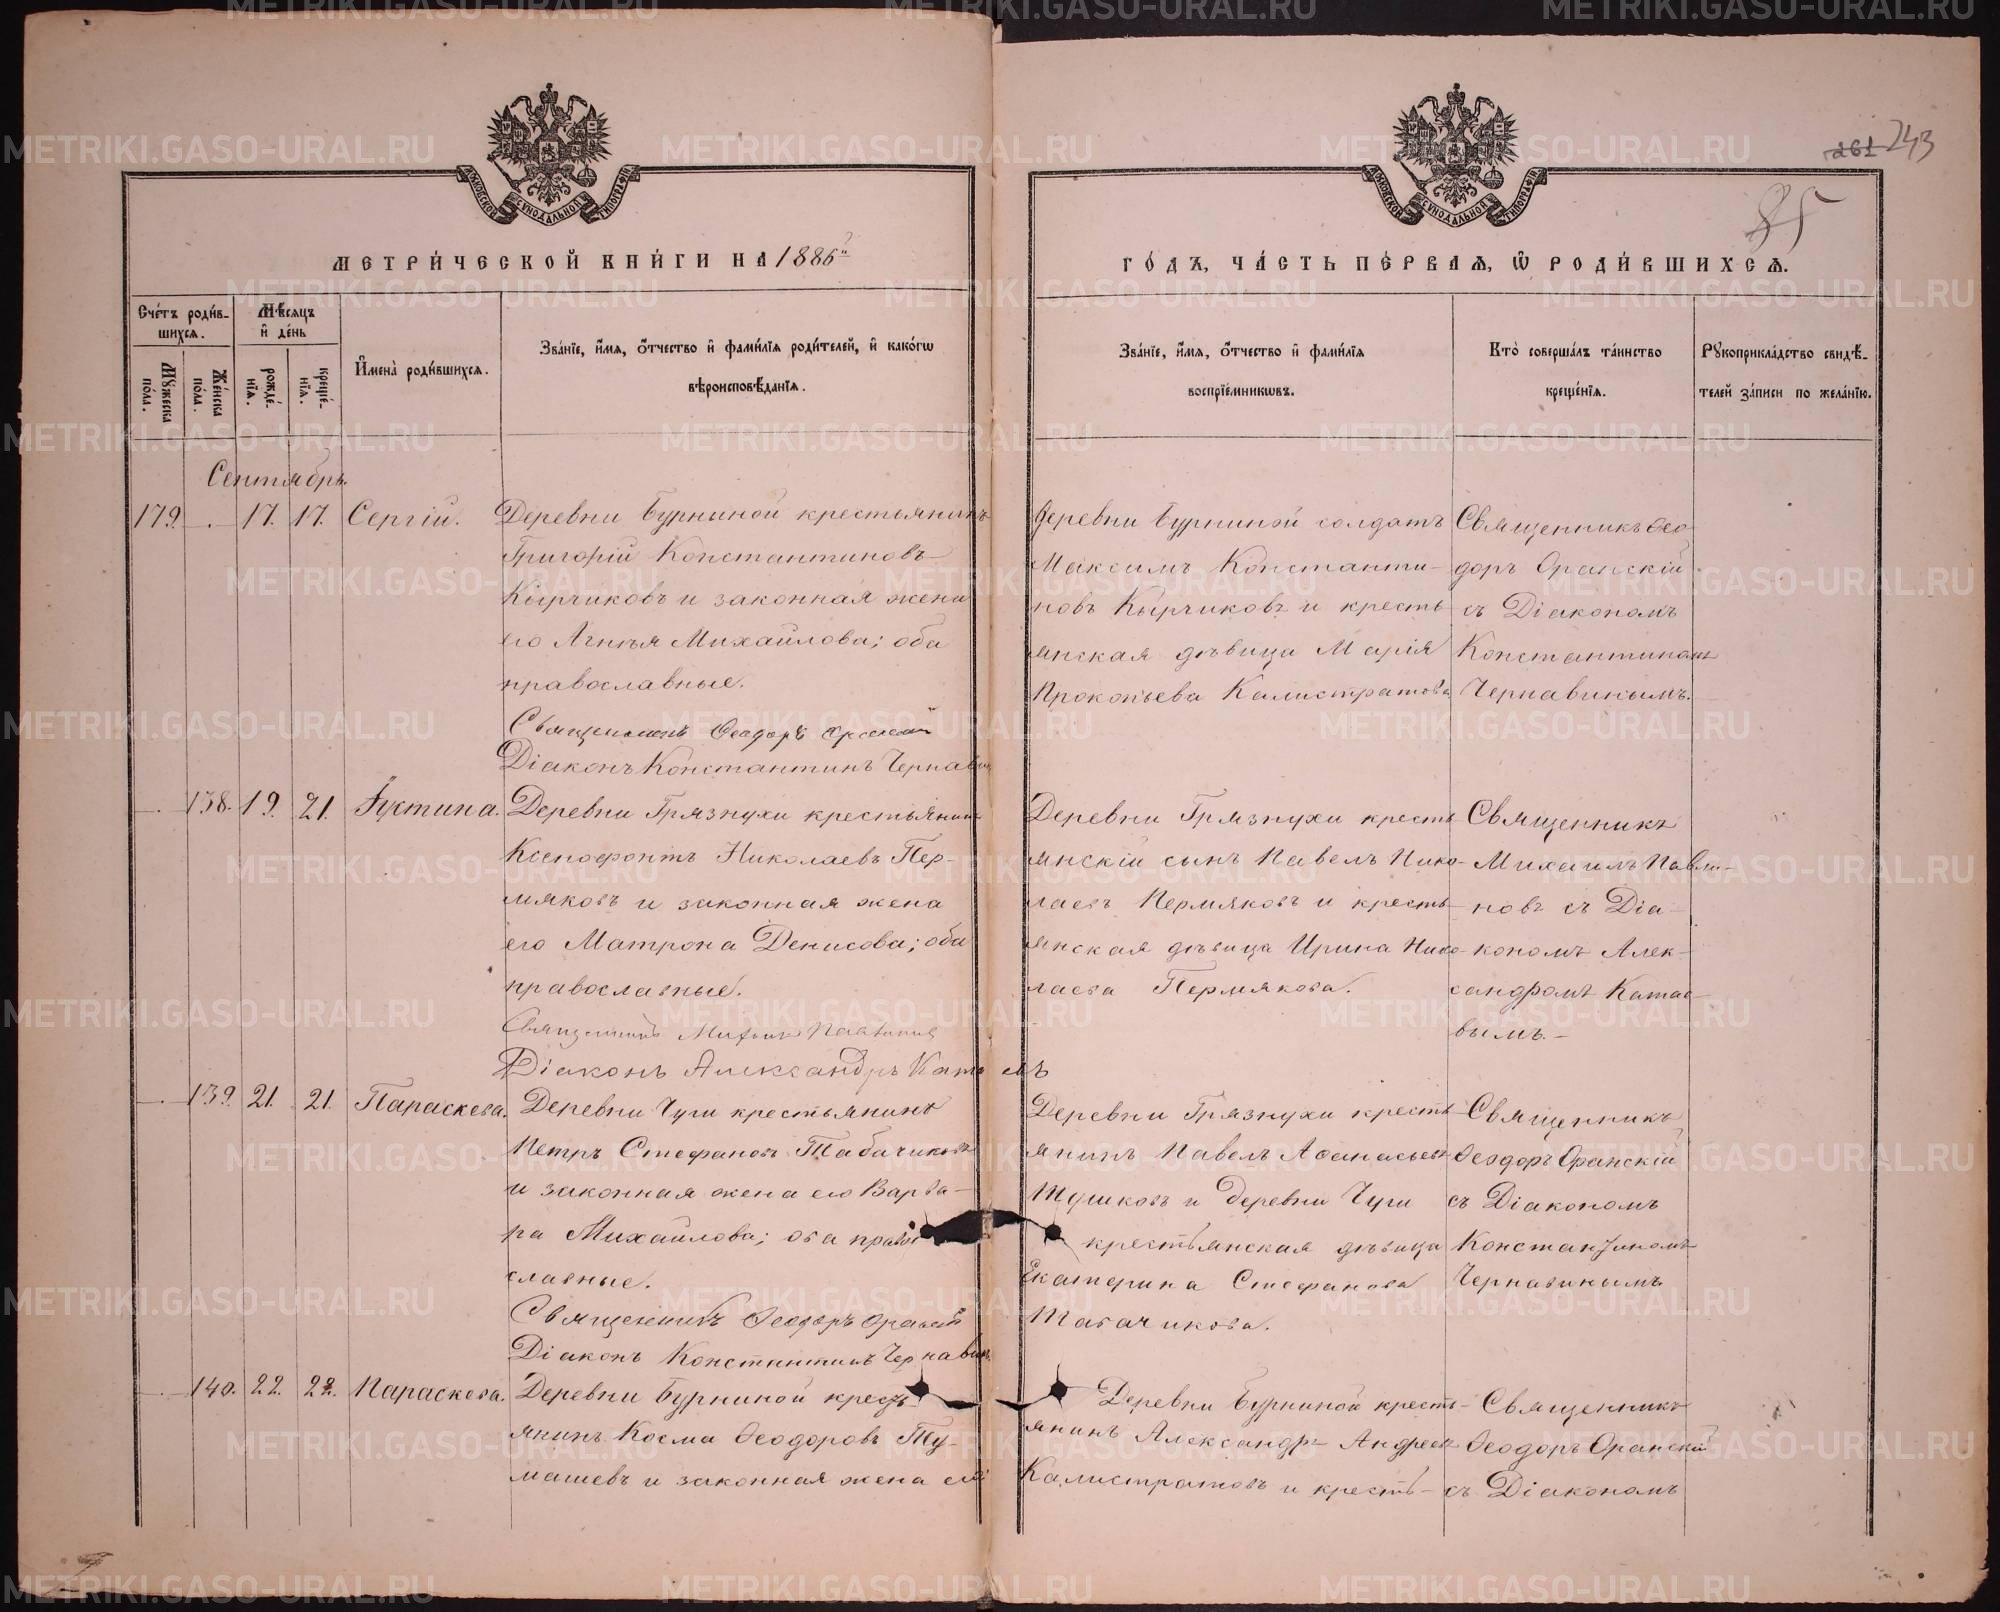 261 243
85
МЕТРИ́ЧЕСКОЙ КНИ́ГИ НА 1886й
ГО́ДЪ, ЧА́СТЬ ПЕ́РВАѦ, Ѽ РОДИ́ВШИХСѦ.
Сче́тъ роди́в-
шихсѧ.
Мѣ́сѧцъ
и҆ де́нь
Мꙋ́жеска
по́ла.
Же́нска
по́ла.
рожде́-
нїѧ.
креще́-
нїѧ.
И҆мена̀ роди́вшихсѧ.
Зва́нїе, и҆́мѧ, ѻ҆́тчество и҆ фами́лїѧ роди́телей, и҆ како́гѡ
вѣроисповѣ́данїѧ.
Зва́нїе, и҆́мѧ, ѻ҆́тчество и҆ фами́лїѧ
воспрїе́мникѡвъ.
Кто̀ соверша́лъ та́инство
креще́нїѧ.
Рꙋкоприкла́дство свидѣ́-
телей за́писи по жела́нїю.
Сентябрь.
179. - 17. 17. Сергій.
Деревни Бурниной крестьянинъ
Григорій Константиновъ
Кырчиковъ и законная жена
его Агнія Михайлова; оба
православные.
Священникъ Ѳеодоръ Оранскій
Діаконъ Константинъ Чернавин
Деревни Бурниной солдатъ
Максимъ Константи-
новъ Кырчиковъ и кресть
янская дѣвица Марія
Прокопьева Калистратова
Священникъ Ѳео
доръ Оранскій
съ Діакономъ
Константиномъ
Чернавинымъ.
- 138. 19. 21. Іустина.
Деревни Грязнухи крестьянинъ
Ксенофонтъ Николаевъ Пер-
мяковъ и законная жена
его Матрона Денисова; оба
православные.
Священникъ Михаилъ Павлинов
Діаконъ Александръ Кат въ
Деревни Грязнухи кресть
янскій сынъ Павелъ Нико-
лаевъ Пермяковъ и кресть-
янская дѣвица Ирина Нико-
лаева Пермякова.
Священникъ
Михаилъ Павли-
новъ съ Діа-
кономъ Алек-
сандромъ Катае-
вымъ.-
- 139. 21. 21. Параскева.
Деревни Чуги крестьянинъ
Петръ Стефановъ Табачиковъ
и законная жена его Варва-
ра Михайлова; оба право
славные.
Священникъ Ѳеодоръ Оранскій
Діаконъ Константинъ Чернавин
Деревни Грязнухи кресть-
янинъ Павелъ Аѳанасьевъ
Тушковъ и деревни Чуги
крестьянская дѣвица
Екатерина Стефанова
Табачикова.
Священникъ
Ѳеодоръ Оранскій
съ Діакономъ
Константиномъ
Чернавинымъ
- 140. 22. 22. Параскева.
Деревни Бурниной кресть-
янинъ Косма Ѳеодоровъ Ту-
машевъ и законная жена его
Деревни Бурниной кресть-
янинъ Александръ Андреевъ
Калистратовъ и кресть-
Священникъ
Ѳеодоръ Оранскій
съ Діакономъ